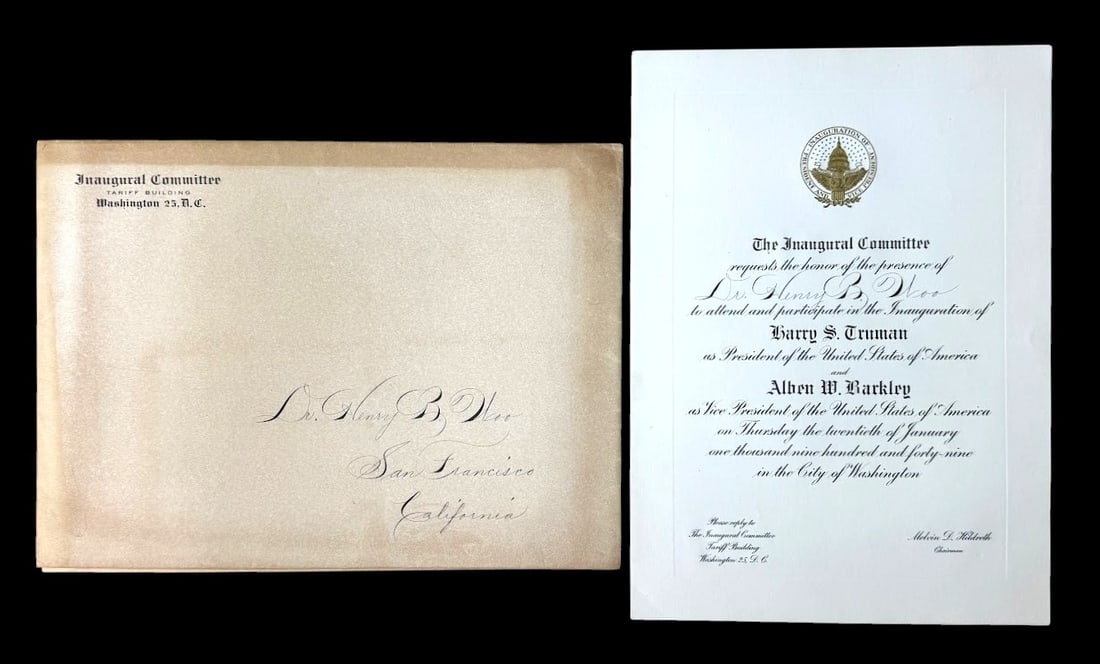 Inaugural Committee
TARIFF BUILDING
Washington 25, D.C.
Dr. Henry B. Woo
San Francisco
California
INAUGURATION OF PRESIDENT AND VICE PRESIDENT
The Inaugural Committee
requests the honor of the presence of
Dr. Henry B. Woo
to attend and participate in the Inauguration of
Harry S. Truman
as President of the United States of America
and
Alben W. Barkley
as Vice President of the United States of America
on Thursday the twentieth of January
one thousand nine hundred and forty-nine
in the City of Washington
Please reply to
The Inaugural Committee
Tariff Building
Washington 25, D. C.
Melvin D. Hildreth
Chairman